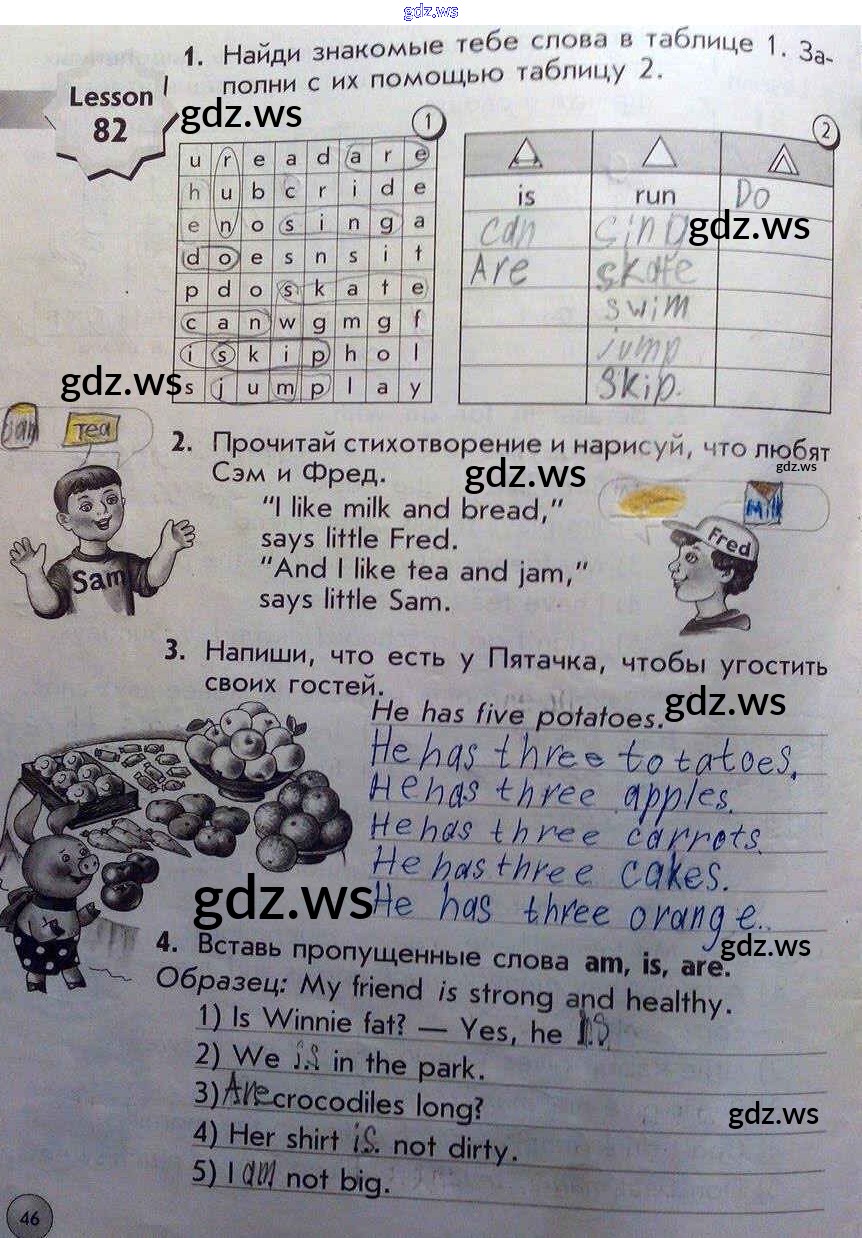 gdz.ws
1. Найди знакомые тебе слова в таблице 1. За-
полни с их помощью таблицу 2.
Lesson
82
gdz.ws
1
2
u r e a d a r e
h u b c r i d e
e n o s i n g a
d o e s n s i t
p d o s k a t e
c a n w g m g f
i s k i p h o l
s j u m p l a y
is run Do
can sing
gdz.ws
Are skate
swim
jump
Skip.
gdz.ws
Jam Tea
2. Прочитай стихотворение и нарисуй, что любят
Сэм и Фред.
gdz.ws
gdz.ws
"I like milk and bread,"
says little Fred.
"And I like tea and jam,"
says little Sam.
Milk
Fred
Sam
3. Напиши, что есть у Пятачка, чтобы угостить
своих гостей.
gdz.ws
He has five potatoes.
He has three totatoes.
He has three apples.
He has three carrots.
He has three cakes.
He has three orange.
gdz.ws
gdz.ws
4. Вставь пропущенные слова am, is, are.
Образец: My friend is strong and healthy.
1) Is Winnie fat? — Yes, he is
2) We is in the park.
3) Are crocodiles long?
gdz.ws
4) Her shirt is. not dirty.
5) I am not big.
46